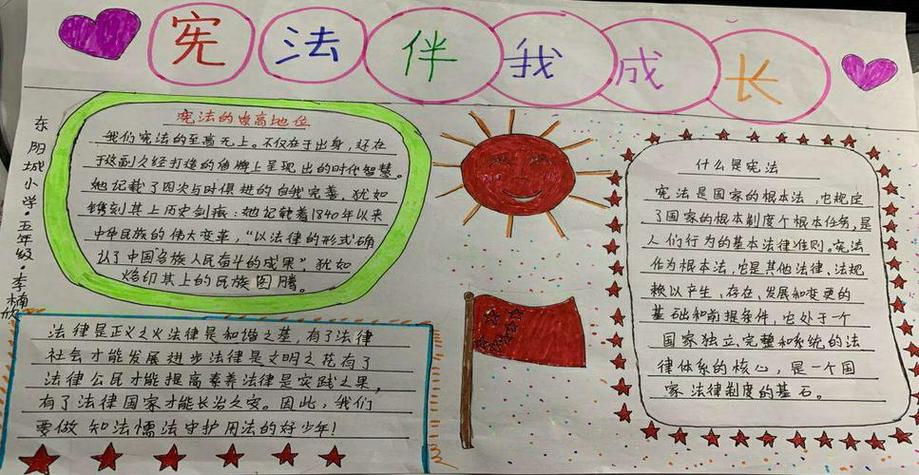 宪法伴我成长
东明城小学·五年级·李楠欣
宪法的崇高地位
我们宪法的至高无上。不仅在于出身,还在
于这副久经打造的盾牌上呈现出的时代智慧。
她记载了四次与时俱进的自我完善,犹如
镌刻其上历史剑痕:她记载着1840年以来
中华民族的伟大变革,“以法律的形式确
认了中国各族人民奋斗的成果”,犹如
烙印其上的民族图腾。
法律是正义之火法律是和谐之基,有了法律
社会才能发展进步法律是文明之花有了
法律公民才能提高素养法律是实践之果,
有了法律国家才能长治久安。因此,我们
要做知法懦法守护用法的好少年!
什么是宪法
宪法是国家的根本法,它规定
了国家的根本制度个根本任务,是
人们行为的基本法律准则。宪法
作为根本法,它是其他法律、法规
赖以产生、存在、发展和变更的
基础和前提条件,它处于一个
国家独立、完整和系统的法
律体系的核心,是一个国
家法律制度的基石。